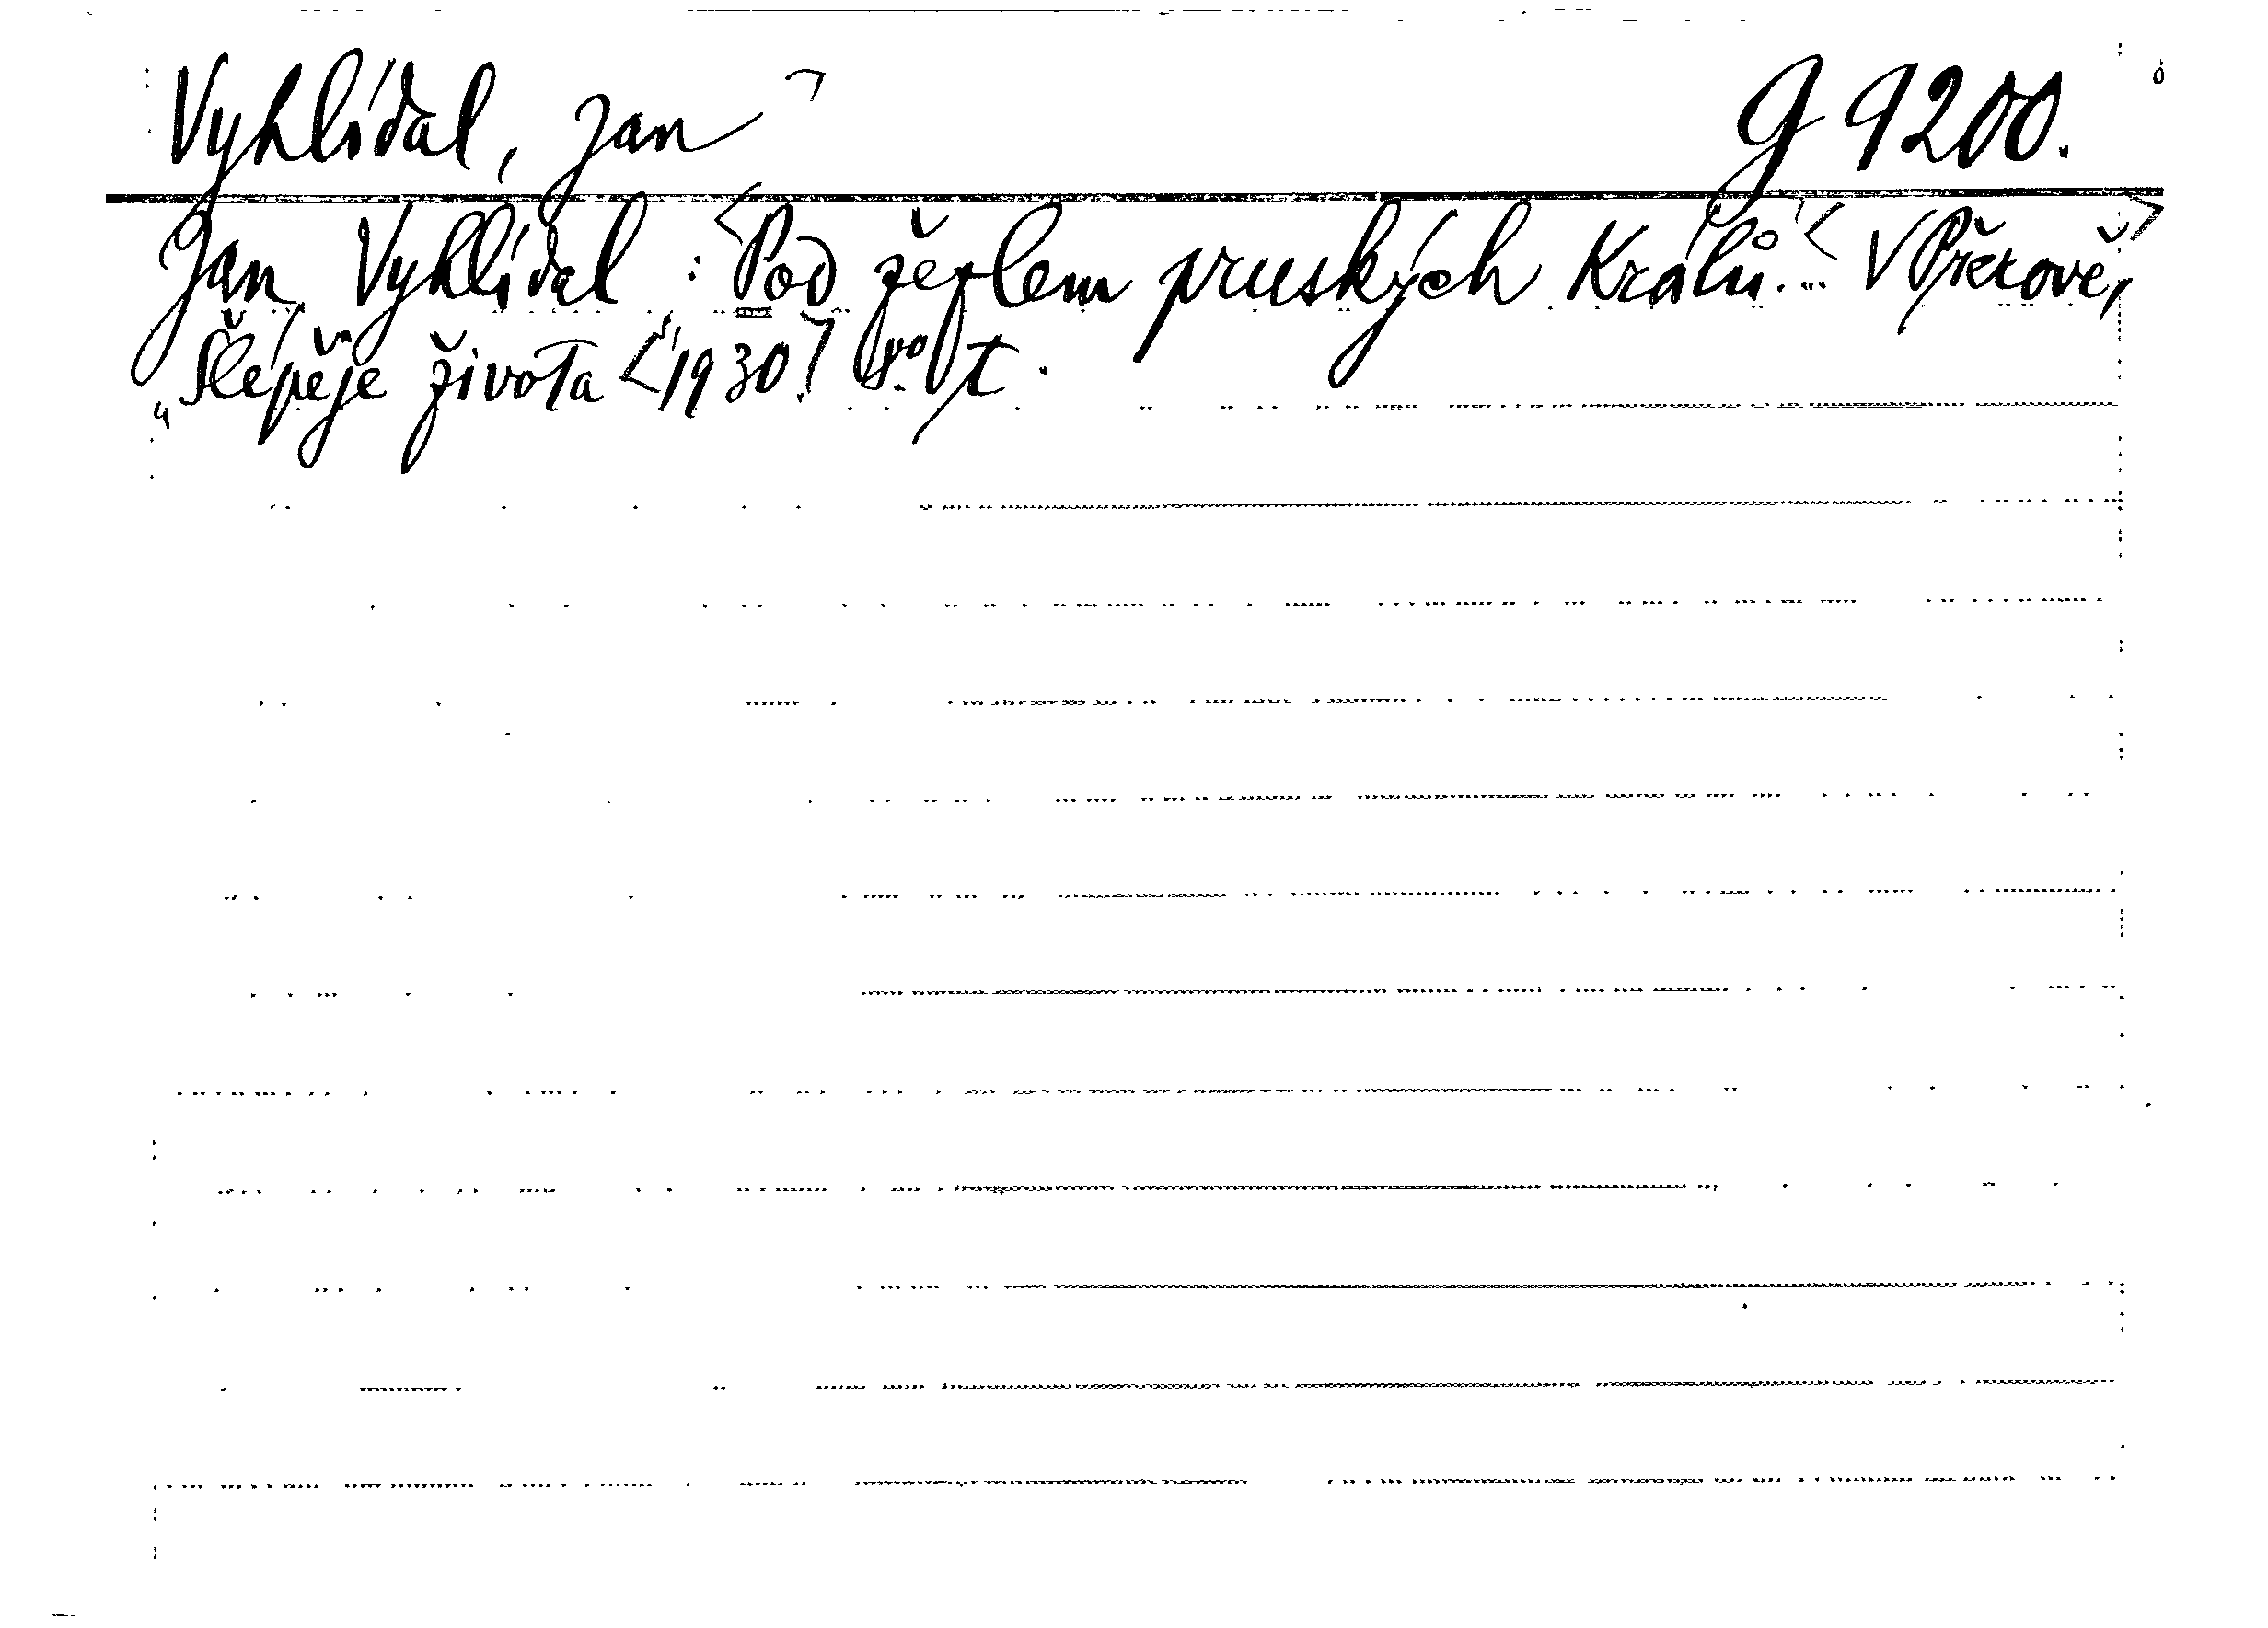 Vyhlídal, Jan G 9200.
Jan Vyhlídal : Pod žezlem pruských králů. V Přerově,
"Šlépěje života" 1930. 8° t.